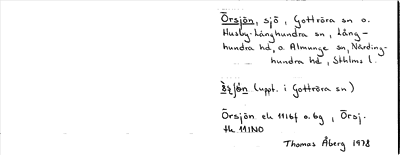 Örsjön, sjö, Gottröra sn o.
Husby-Långhundra sn, Lång-
hundra hd, o. Almunge sn, Närding-
hundra hd, Sthlms l.
(uppt. i Gottröra sn)
Örsjön ek 11Ibf o. bg, Örsj.
tk 11INO
Thomas Åberg 1978